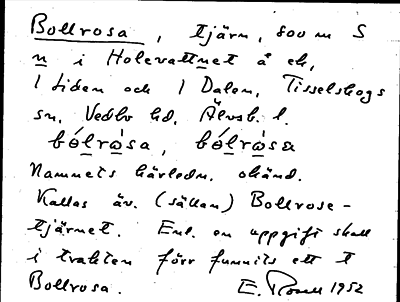 Bollrosa, tjärn, 800 m S
n i Holevattnet å ek,
1 Liden och 1 Dalen, Tisselskogs
sn, Vedbo hd, Älvsb. l.
bólròsa, bólròsa
Namnets härledn. okänd.
Kallas äv. (sällan) Bollrose-
tjärnet. Enl. en uppgift skall
i trakten förr funnits ett t
Bollrosa. E. 1952